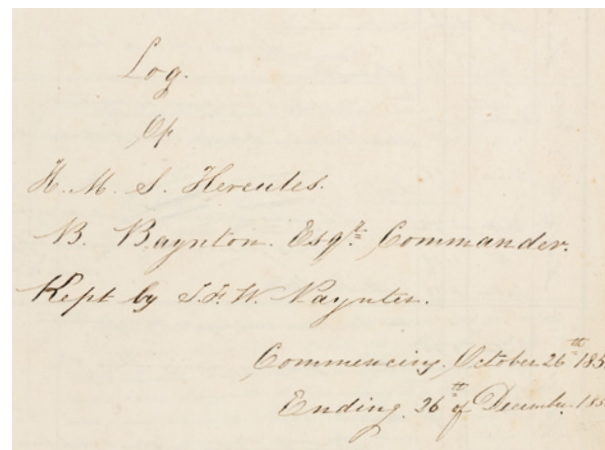 Log.
Of
H. M. S. Hercules.
B. Baynton. Esqr. Commander.
Kept by J. F. W. Paynter.
Commencing. October 26th 185
Ending. 26th of December. 185